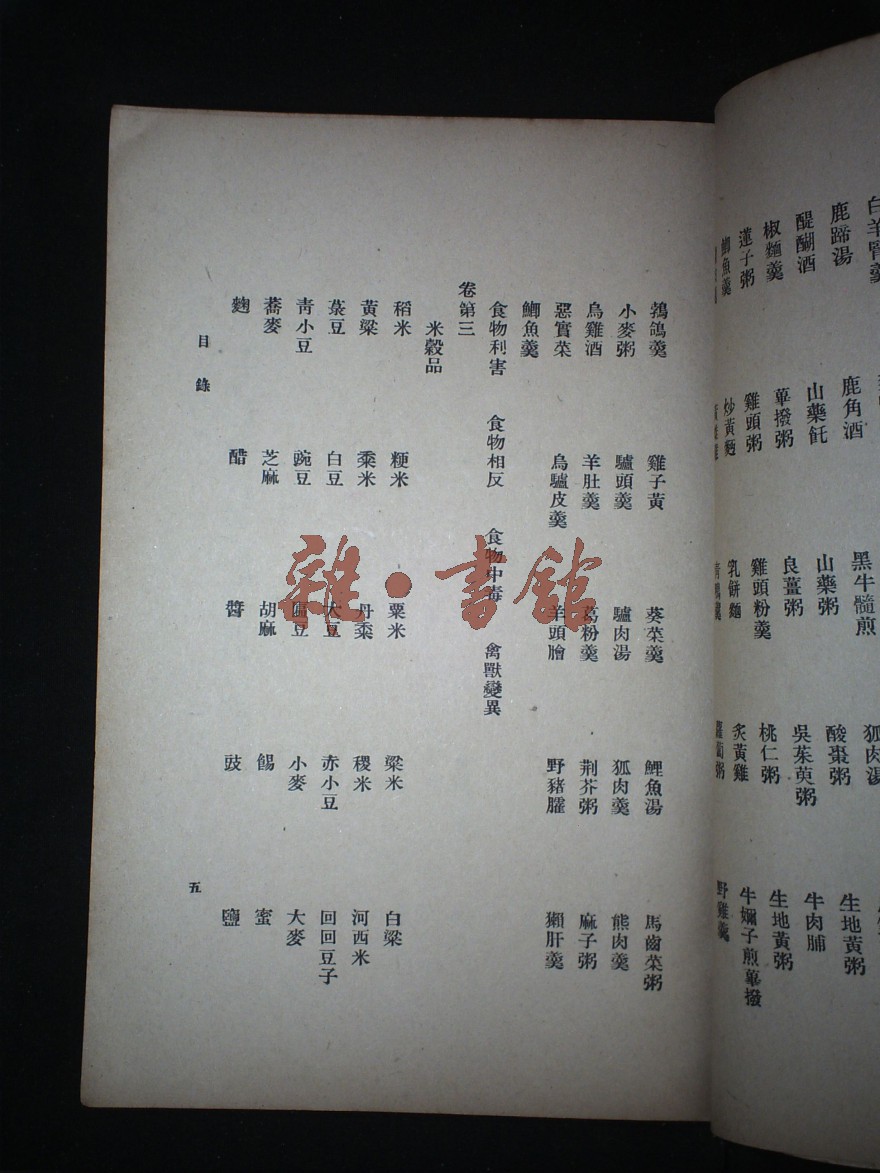 白羊腎羹
鹿蹄湯 鹿角酒 黑牛髓煎 狐肉湯
醍醐酒 山藥飥 山藥粥 酸棗粥 生地黃粥
椒麵羹 蓽撥粥 良薑粥 吳茱萸粥 牛肉脯
蓮子粥 雞頭粥 雞頭粉羹 桃仁粥 生地黃粥
鯽魚羹 炒黃麵 乳餅麵 炙黃雞 牛嬭子煎蓽撥
青鴨羹 蘿蔔粥 野雞羹
鵓鴿羹 雞子黃 葵菜羹 鯉魚湯 馬齒菜粥
小麥粥 驢頭羹 驢肉湯 狐肉羹 熊肉羹
烏雞酒 羊肚羹 葛粉羹 荆芥粥 麻子粥
惡實菜 烏驢皮羹 羊頭膾 野豬臛 獺肝羹
鯽魚羹
食物利害 食物相反 食物中毒 禽獸變異
卷第三
米穀品
稻米 粳米 粟米 粱米 白粱
黃粱 黍米 丹黍 稷米 河西米
菉豆 白豆 大豆 赤小豆 回回豆子
靑小豆 豌豆 匾豆 小麥 大麥
蕎麥 芝麻 胡麻 餳 蜜
麴 醋 醬 豉 鹽
目錄 五
雜·書館